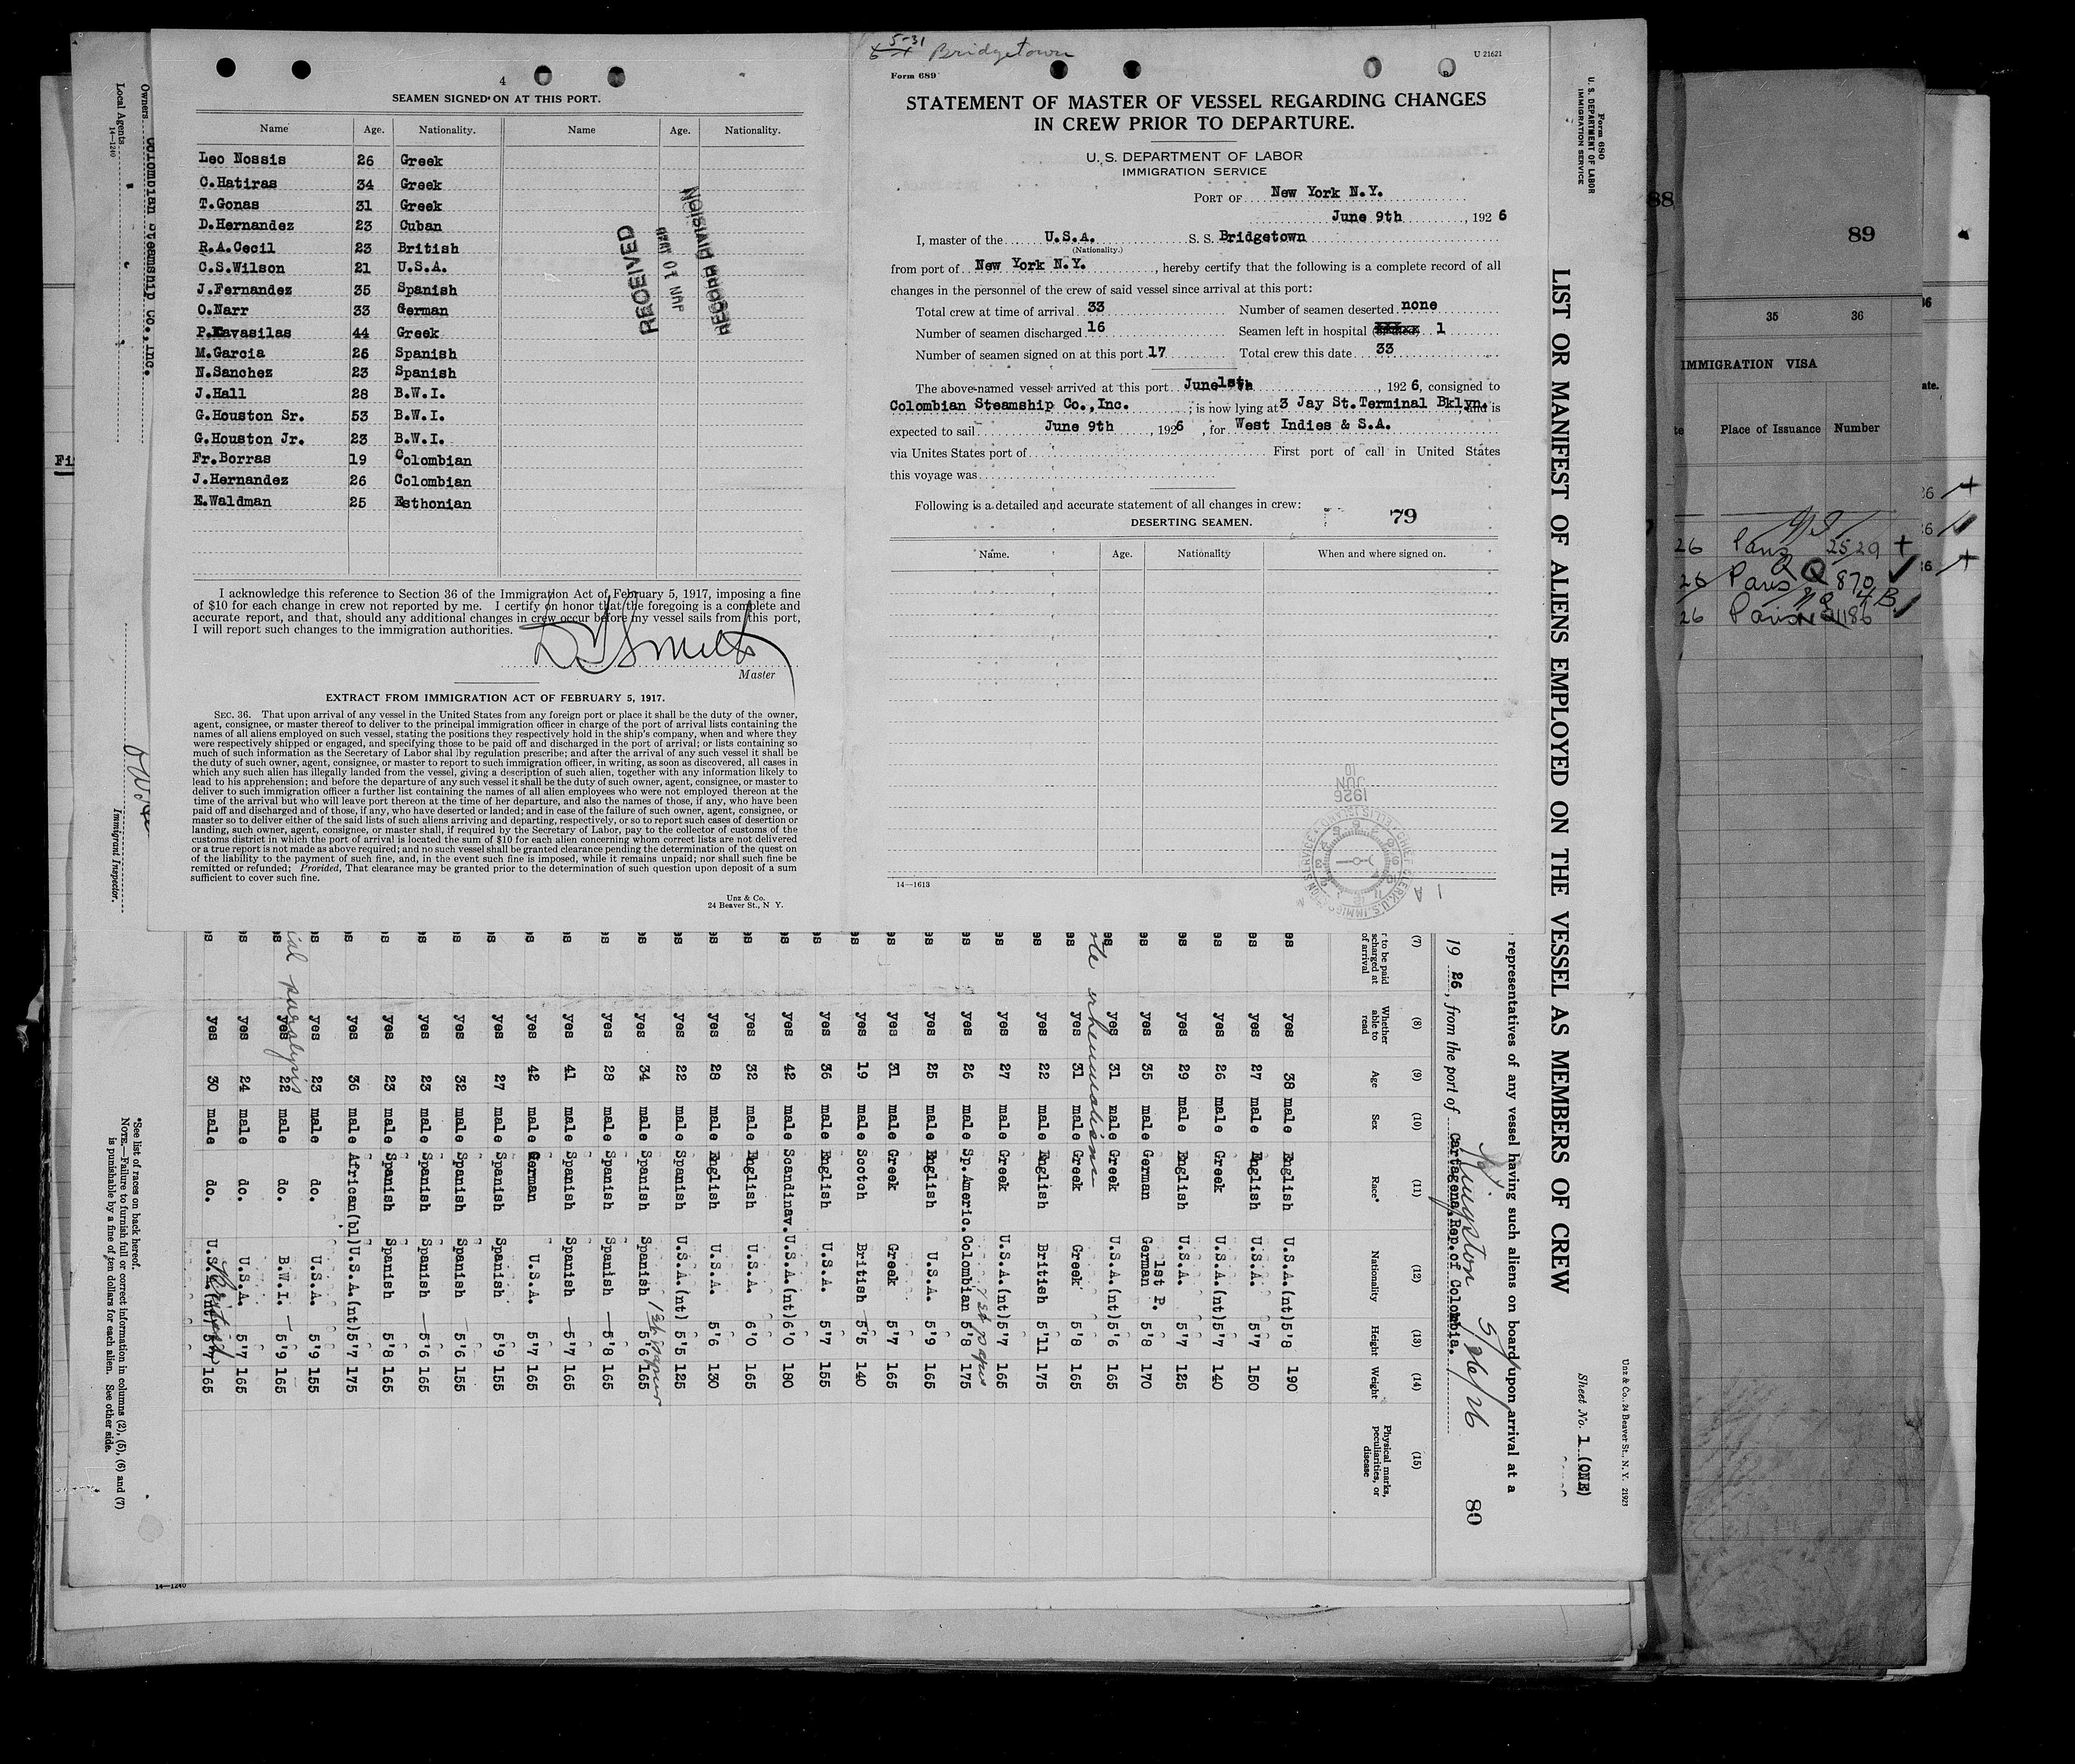 4
SEAMEN SIGNED ON AT THIS PORT.
Name Age. Nationality. Name Age. Nationality.
Leo Nossis 26 Greek
C.Hatiras 34 Greek
T.Gonas 31 Greek
D.Hernandez 23 Cuban
R.A.Cecil 23 British
C.S.Wilson 21 U.S.A.
J.Fernandez 35 Spanish
O.Narr 33 German
P.Kavasilas 44 Greek
M.Garcia 26 Spanish
N.Sanchez 23 Spanish
J.Hall 28 B.W.I.
G.Houston Sr. 53 B.W.I.
G.Houston Jr. 23 B.W.I.
Fr.Borras 19 Colombian
J.Hernandez 26 Colombian
E.Waldman 25 Esthonian
RECEIVED
JUN 10 1926
RECORD DIVISION
I acknowledge this reference to Section 36 of the Immigration Act of February 5, 1917, imposing a fine
of $10 for each change in crew not reported by me. I certify on honor that the foregoing is a complete and
accurate report, and that, should any additional changes in crew occur before my vessel sails from this port,
I will report such changes to the immigration authorities.
Master
EXTRACT FROM IMMIGRATION ACT OF FEBRUARY 5, 1917.
SEC. 36. That upon arrival of any vessel in the United States from any foreign port or place it shall be the duty of the owner,
agent, consignee, or master thereof to deliver to the principal immigration officer in charge of the port of arrival lists containing the
names of all aliens employed on such vessel, stating the positions they respectively hold in the ship's company, when and where they
were respectively shipped or engaged, and specifying those to be paid off and discharged in the port of arrival; or lists containing so
much of such information as the Secretary of Labor shal lby regulation prescribe; and after the arrival of any such vessel it shall be
the duty of such owner, agent, consignee, or master to report to such immigration officer, in writing, as soon as discovered, all cases in
which any such alien has illegally landed from the vessel, giving a description of such alien, together with any information likely to
lead to his apprehension; and before the departure of any such vessel it shall be the duty of such owner, agent, consignee, or master to
deliver to such immigration officer a further list containing the names of all alien employees who were not employed thereon at the
time of the arrival but who will leave port thereon at the time of her departure, and also the names of those, if any, who have been
paid off and discharged and of those, if any, who have deserted or landed; and in case of the failure of such owner, agent, consignee, or
master so to deliver either of the said lists of such aliens arriving and departing, respectively, or so to report such cases of desertion or
landing, such owner, agent, consignee, or master shall, if required by the Secretary of Labor, pay to the collector of customs of the
customs district in which the port of arrival is located the sum of $10 for each alien concerning whom correct lists are not delivered
or a true report is not made as above required; and no such vessel shall be granted clearance pending the determination of the quest on
of the liability to the payment of such fine, and, in the event such fine is imposed, while it remains unpaid; nor shall such fine be
remitted or refunded; Provided, That clearance may be granted prior to the determination of such question upon deposit of a sum
sufficient to cover such fine.
Unz & Co.
24 Beaver St., N Y.
5-31 Bridgetown
U 21621
Form 689
STATEMENT OF MASTER OF VESSEL REGARDING CHANGES
IN CREW PRIOR TO DEPARTURE.
U. S. DEPARTMENT OF LABOR
IMMIGRATION SERVICE
PORT OF New York N.Y.
June 9th, 1926
I, master of the U.S.A. S. S. Bridgetown
(Nationality.)
from port of New York N.Y., hereby certify that the following is a complete record of all
changes in the personnel of the crew of said vessel since arrival at this port:
Total crew at time of arrival 33 Number of seamen deserted none
Number of seamen discharged 16 Seamen left in hospital 1
Number of seamen signed on at this port 17 Total crew this date 33
The above-named vessel arrived at this port June 1st, 1926, consigned to
Colombian Steamship Co.,Inc.; is now lying at 3 Jay St.Terminal Bklyn. and is
expected to sail June 9th, 1926, for West Indies & S.A.
via Unites States port of First port of call in United States
this voyage was
Following is a detailed and accurate statement of all changes in crew:
DESERTING SEAMEN. 79
Name. Age. Nationality When and where signed on.
1926
JUN
10
14—1613
Form 680
U. S. DEPARTMENT OF LABOR
IMMIGRATION SERVICE
LIST OR MANIFEST OF ALIENS EMPLOYED ON THE VESSEL AS MEMBERS OF CREW
Unz & Co., 24 Beaver St., N. Y. 21923
Sheet No. 1 (ONE)
representatives of any vessel having such aliens on board upon arrival at a
80
1926, from the port of Cartagena,Rep.of Colombia.
Kingston 5/26/26
(7) (8) (9) (10) (11) (12) (13) (14) (15)
r to be paid scharged at of arrival Whether able to read Age Sex Race* Nationality Height Weight Physical marks, peculiarities, or disease
yes 38 male English U.S.A.(nt) 5'8 190
yes 27 male English U.S.A. 5'7 150
yes 26 male Greek U.S.A.(nt) 5'7 140
yes 29 male English U.S.A. 5'7 125
yes 35 male German German 1st P. 5'8 170
yes 31 male Greek U.S.A.(nt) 5'6 165
yes 31 male Greek Greek 5'8 165
yes 22 male English British 5'11 175
yes 27 male Greek U.S.A.(nt) 5'7 165
yes 26 male Sp.Americ. Colombian 5'8 175
1st papers
yes 25 male English U.S.A. 5'9 165
yes 31 male Greek Greek 5'7 165
yes 19 male Scotch British 5'5 140
yes 36 male English U.S.A. 5'7 155
yes 42 male Scandinav. U.S.A.(nt) 6'0 180
yes 32 male English U.S.A. 6'0 165
yes 28 male English U.S.A. 5'6 130
yes 22 male Spanish U.S.A.(nt) 5'5 125
yes 34 male Spanish Spanish 5'6 165
yes 28 male Spanish Spanish 5'8 165
yes 41 male Spanish Spanish 5'7 165
yes 42 male German U.S.A. 5'7 165
yes 27 male Spanish Spanish 5'9 155
yes 32 male Spanish Spanish 5'6 155
yes 23 male Spanish Spanish 5'6 165
yes 23 male Spanish Spanish 5'8 165
yes 36 male African(bl) U.S.A.(nt) 5'7 175
yes 23 male do. U.S.A. 5'9 155
yes 22 male do. B.W.I. 5'9 165
yes 24 male do. U.S.A. 5'7 165
yes 30 male do. 5'7 165
*See list of races on back hereof.
NOTE.—Failure to furnish full or correct information in columns (2), (5), (6) and (7)
is punishable by a fine of ten dollars for each alien. See other side.
Owners
Colombian Steamship Co.,Inc.
Local Agents
14—1240
Immigrant Inspector.
14—1240
88
89
35 36
IMMIGRATION VISA
Place of Issuance Number
26 Paris 2529
26 Paris 870
26 Paris 1186